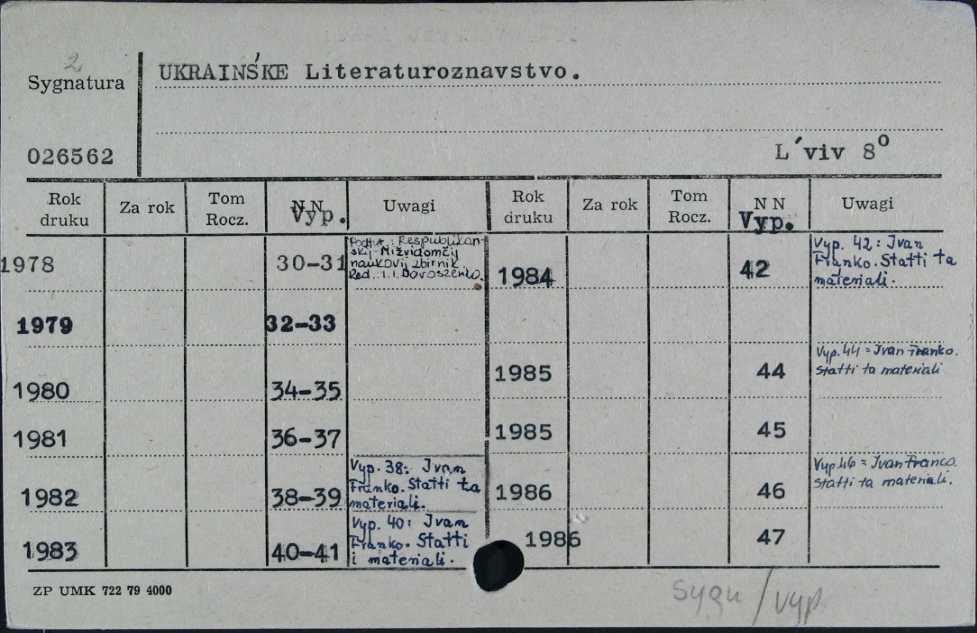 2
Sygnatura
UKRAINŚKE Literaturoznavstvo.
026562
L´viv 8⁰
Rok druku Za rok Tom Rocz. N N Vyp. Uwagi Rok druku Za rok Tom Rocz. N N Vyp. Uwagi
1978 30-31
Podtit.: Respublikan-
skij Mižvidomčij
naukovij zbirnik.
Red.: I. I. Dorošenko.
1984 42
Vyp. 42: Ivan
Franko. Statti ta
materiali.
1979 32-33
1980 34-35
1985 44
Vyp. 44 = Ivan Franko.
Statti ta materiali
1981 36-37
1985 45
1982 38-39
Vyp. 38: Ivan
Franko. Statti ta
materiali.
1986 46
Vyp. 46 = Ivan Franco.
Statti ta materiali.
1983 40-41
Vyp. 40: Ivan
Franko. Statti
i materiali.
1986 47
ZP UMK 722 79 4000
sygn / vyp.